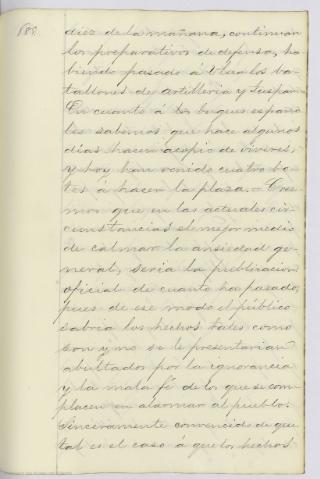 188.
diez de la mañana, continuan
los preparativos de defensa, ha
biendo pasado á Ulua los ba-
tallones de artilleria y Tuspan.
En cuanto á los buques españo
les sabemos que hace algunos
dias hacen acopio de viveres,
y hoy han venido cuatro bo-
tes á hacer la plaza. - Cree
mos que en las actuales cir-
cunstancias el mejor medio
de calmar la ansiedad ge-
neral, seria la publicacion
oficial de cuanto ha pasado,
pues de ese modo el público
sabria los hechos tales como
son y no se le presentarian
abultados por la ignorancia
y la mala fé de los que se com-
placen en alarmar al pueblo.
Sinceramente convencido de que
tal es el caso á que los hechos